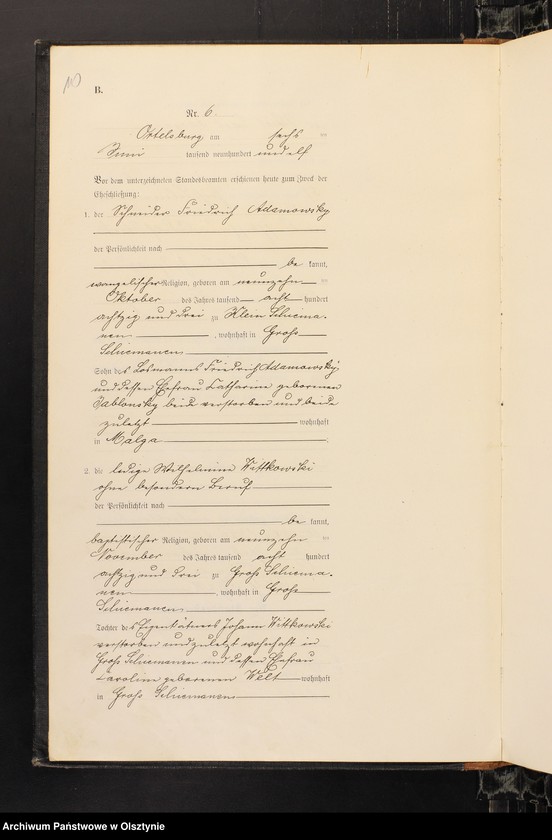 B.
Nr. 6.
Ortelsburg am sechs ten
Juni tausend neunhundert und elf
Vor dem unterzeichneten Standesbeamten erschienen heute zum Zweck der
Eheschließung:
1. der Schneider Friedrich Adamowsky
der Persönlichkeit nach
be kannt,
evangelischer Religion, geboren am neunzehn ten
Oktober des Jahres tausend acht hundert
achtzig und drei zu Klein Schiema-
nen, wohnhaft in Groß
Schiemanen
Sohn des Losmanns Friedrich Adamowsky
und dessen Ehefrau Katharine geborenen
Jablonsky beide verstorben und beide
zuletzt wohnhaft
in Malga.
2. die ledige Wilhelmine Wittkowski
ohne besondern Beruf
der Persönlichkeit nach
be kannt,
baptistischer Religion, geboren am neunzehn ten
November des Jahres tausend acht hundert
achtzig und drei zu Groß Schiema-
nen, wohnhaft in Groß
Schiemanen
Tochter des Eigentümers Johann Wittkowski
verstorben und zuletzt wohnhaft in
Groß Schiemanen und dessen Ehefrau
Karoline geborenen Welt wohnhaft
in Groß Schiemanen
Archiwum Państwowe w Olsztynie